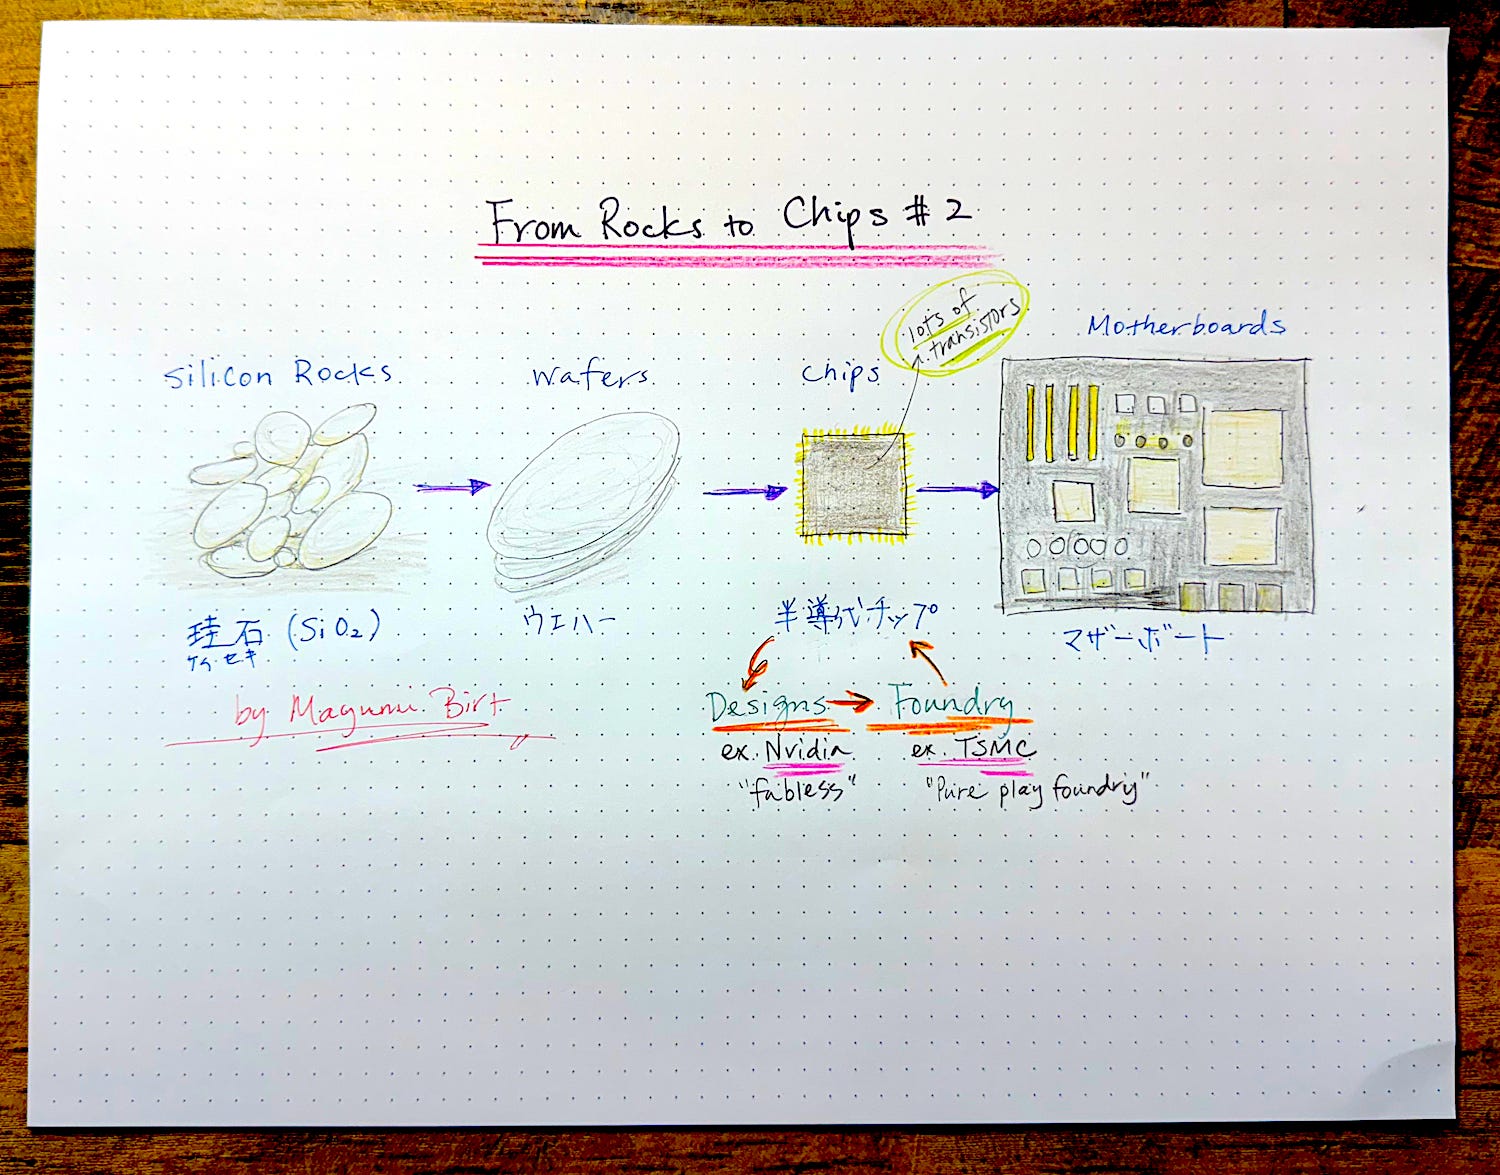 From Rocks to Chips #2
lots of
transistors
Silicon Rocks
wafers
chips
Motherboards
珪石 (SiO₂)
ケイセキ
ウエハー
半導代チップ
マザーボート
by Mayumi Birt
Designs
Foundry
ex. Nvidia
ex. TSMC
"fabless"
"Pure play foundry"